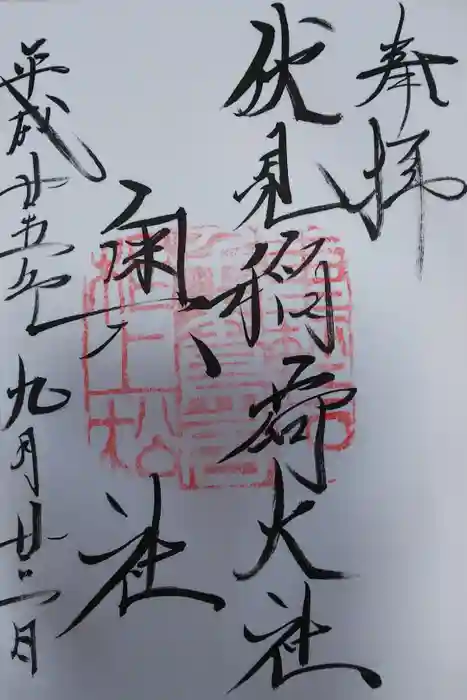 奉拝
伏見稲荷大社
奥社
平成廿五年九月廿二日